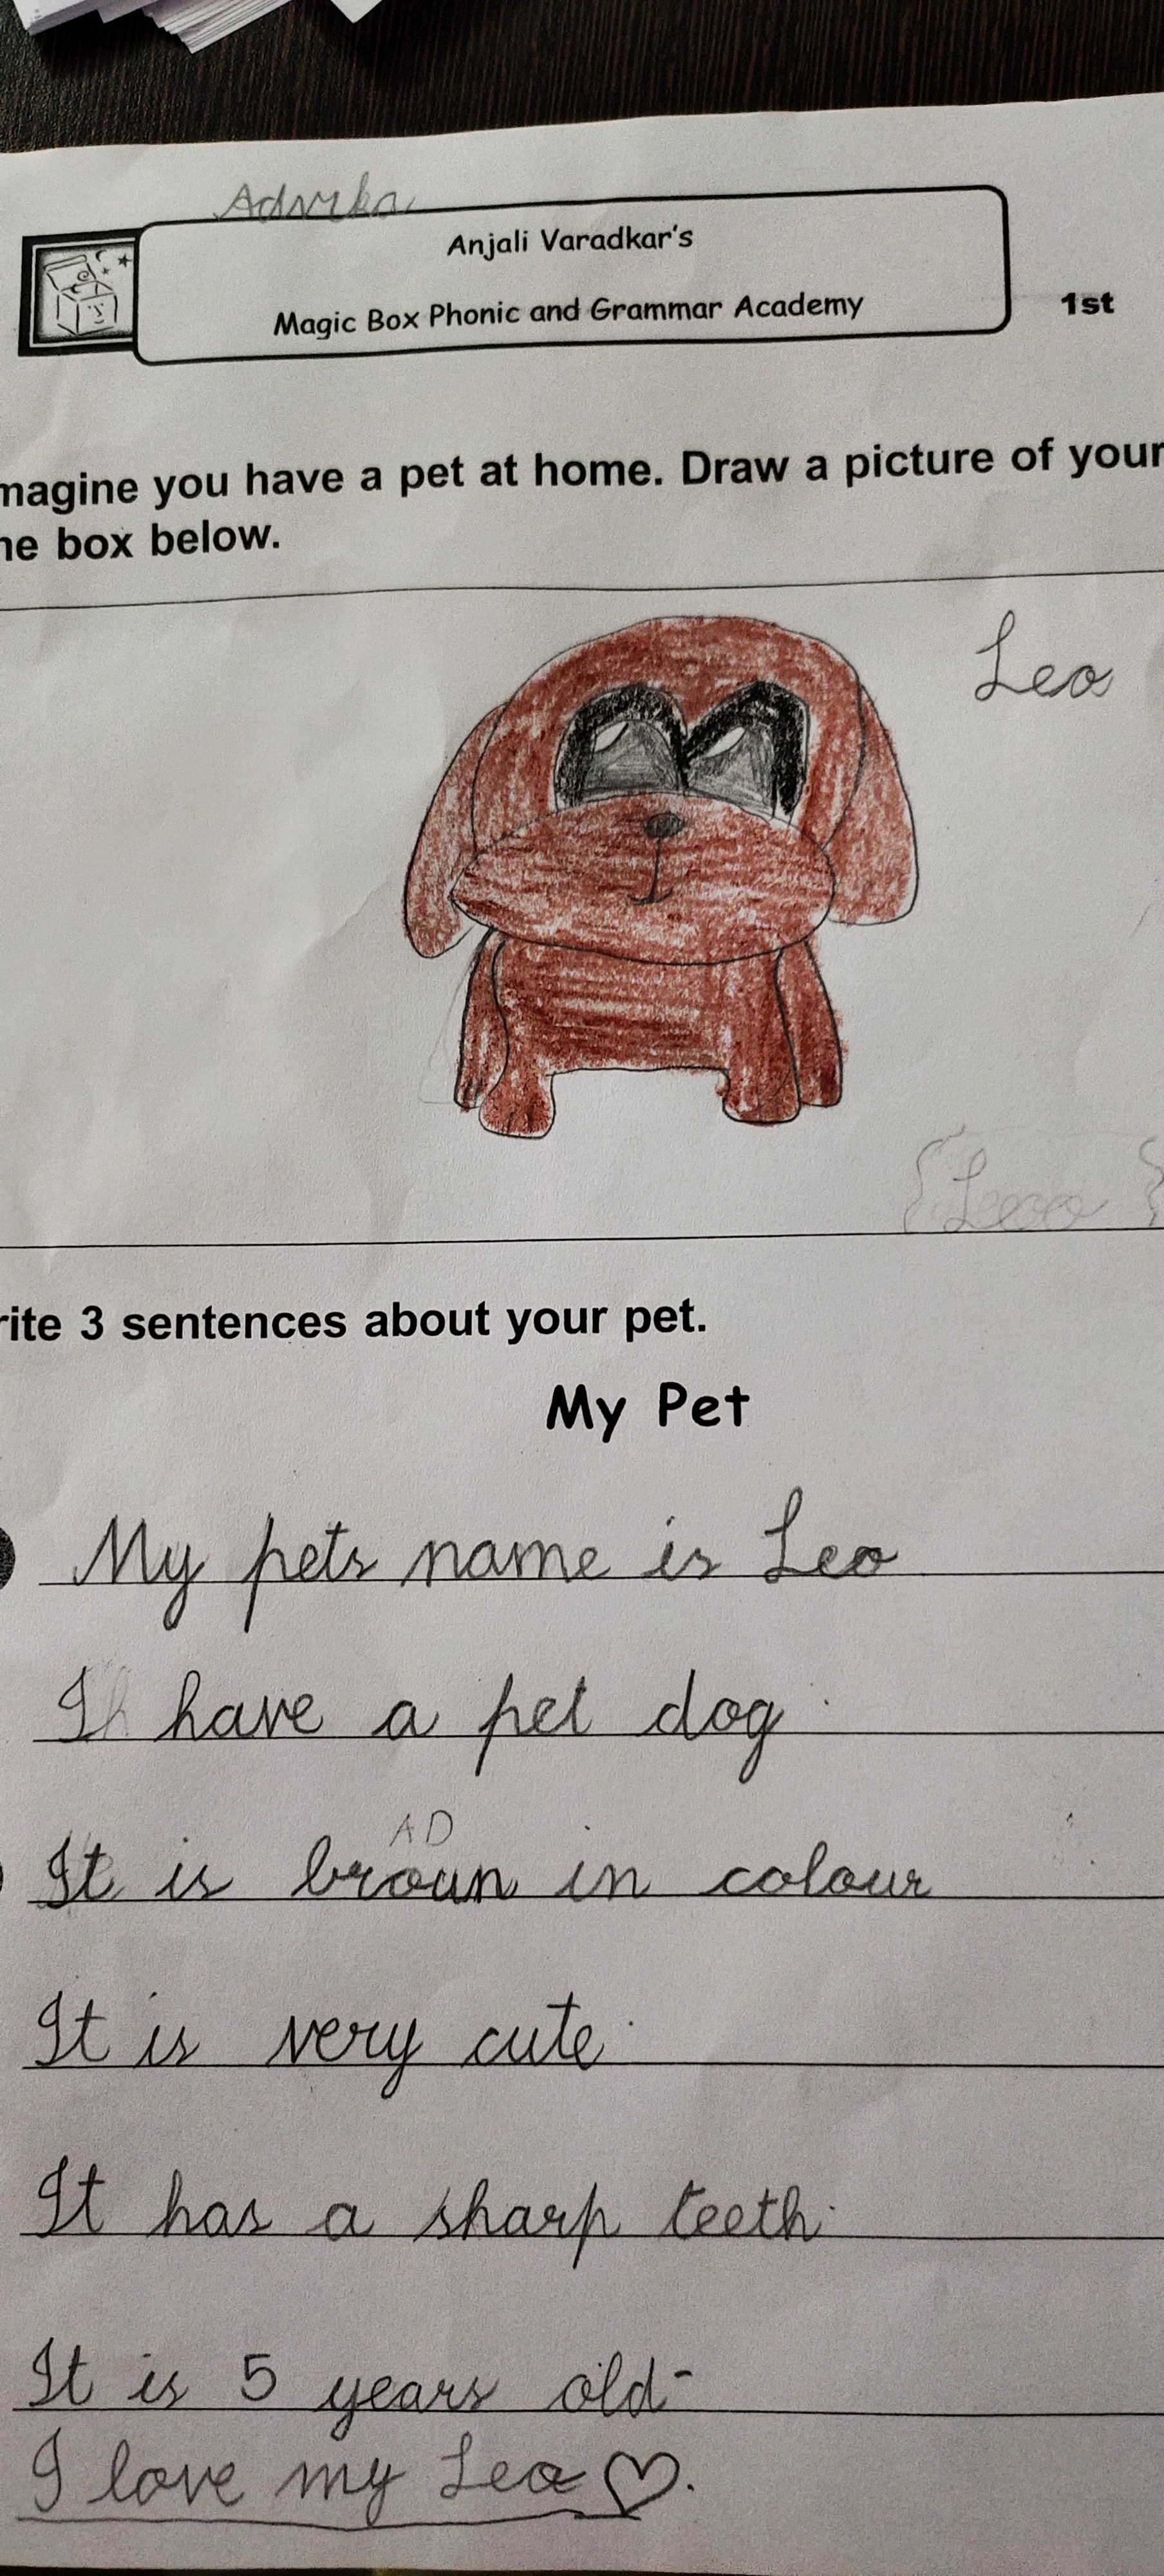 Advika
Anjali Varadkar's
Magic Box Phonic and Grammar Academy
1st
magine you have a pet at home. Draw a picture of your
he box below.
Leo
{Leo}
rite 3 sentences about your pet.
My Pet
My pets name is Leo
I have a pet dog
AD
It is broun in colour
It is very cute.
It has a sharp teeth.
It is 5 years old-
I love my Leo♡.